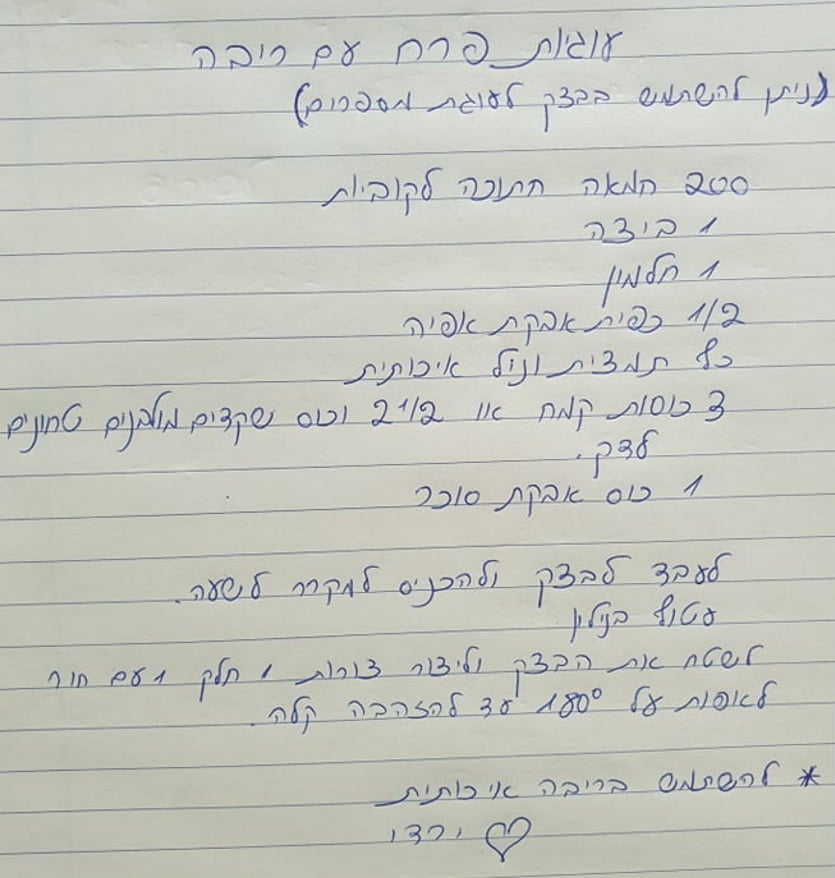 עוגיות פרח עם ריבה
(ניתן להשתמש בבצק לעוגת מספרים)
200 חמאה חתוכה לקוביות
1 ביצה
1 חלמון
1/2 כפית אבקת אפיה
כף תמצית וניל איכותית
3 כוסות קמח או 2 1/2 וכוס שקדים מולבנים טחונים
לדק.
1 כוס אבקת סוכר
לעבד לבצק ולהכניס למקרר לשעה.
עטוף בניילון
לשטח את הבצק וליצור צורות 1 חלק 1 עם חור
לאפות על 180° עד להזהבה קלה.
* להשתמש בריבה איכותית
♡ ירדי